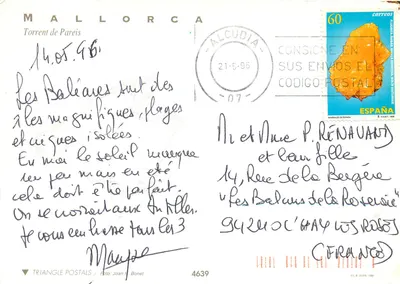 MALLORCA
Torrent de Pareis
14.05.96.
Les Baléares sont des
îles magnifiques, plages
et criques isolées.
En mai le soleil manque
un peu mais en été
cela doit être parfait.
On se croirait aux Antilles.
Je vous embrasse tous les 3
TRIANGLE POSTALS
4639
ALCUDIA
21-5-96
07
CONSIGNE EN
SUS ENVIOS EL
CODIGO POSTAL
60
correos
ESPAÑA
Mr et Mme P. RENAVAND
et leur fille
14, Rue de la Bergère
"Les Balcons de la Roseraie"
94240 L'HAY LES ROSES
(FRANCE)